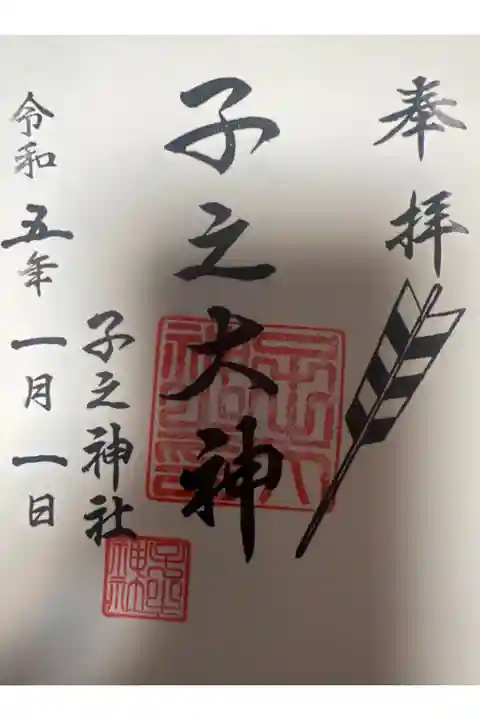 奉拝
子之大神
子之神社
令和五年一月一日